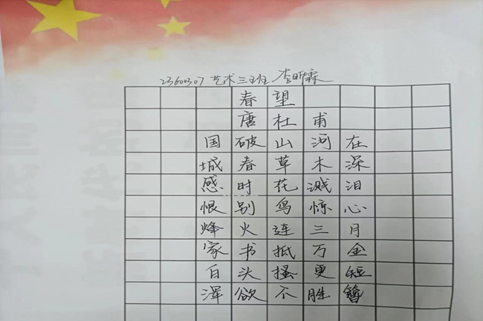 2360307 艺术三班 李昕霖
春望
唐杜甫
国破山河在
城春草木深
感时花溅泪
恨别鸟惊心
烽火连三月
家书抵万金
白头搔更短
浑欲不胜簪